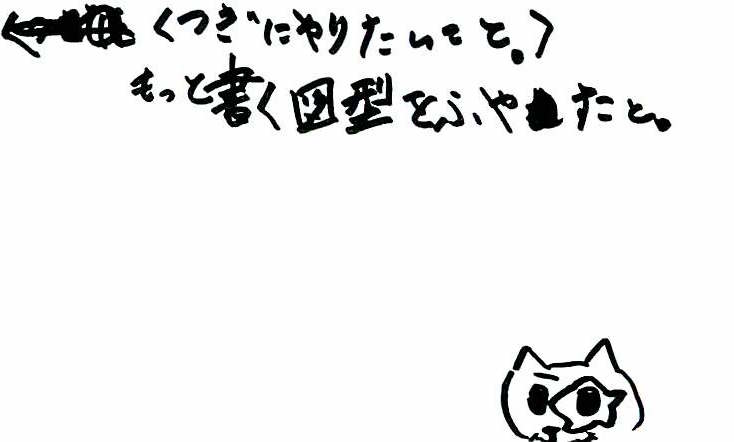 〈つぎにやりたいこと。〉
もっと書く図型をふやたと。